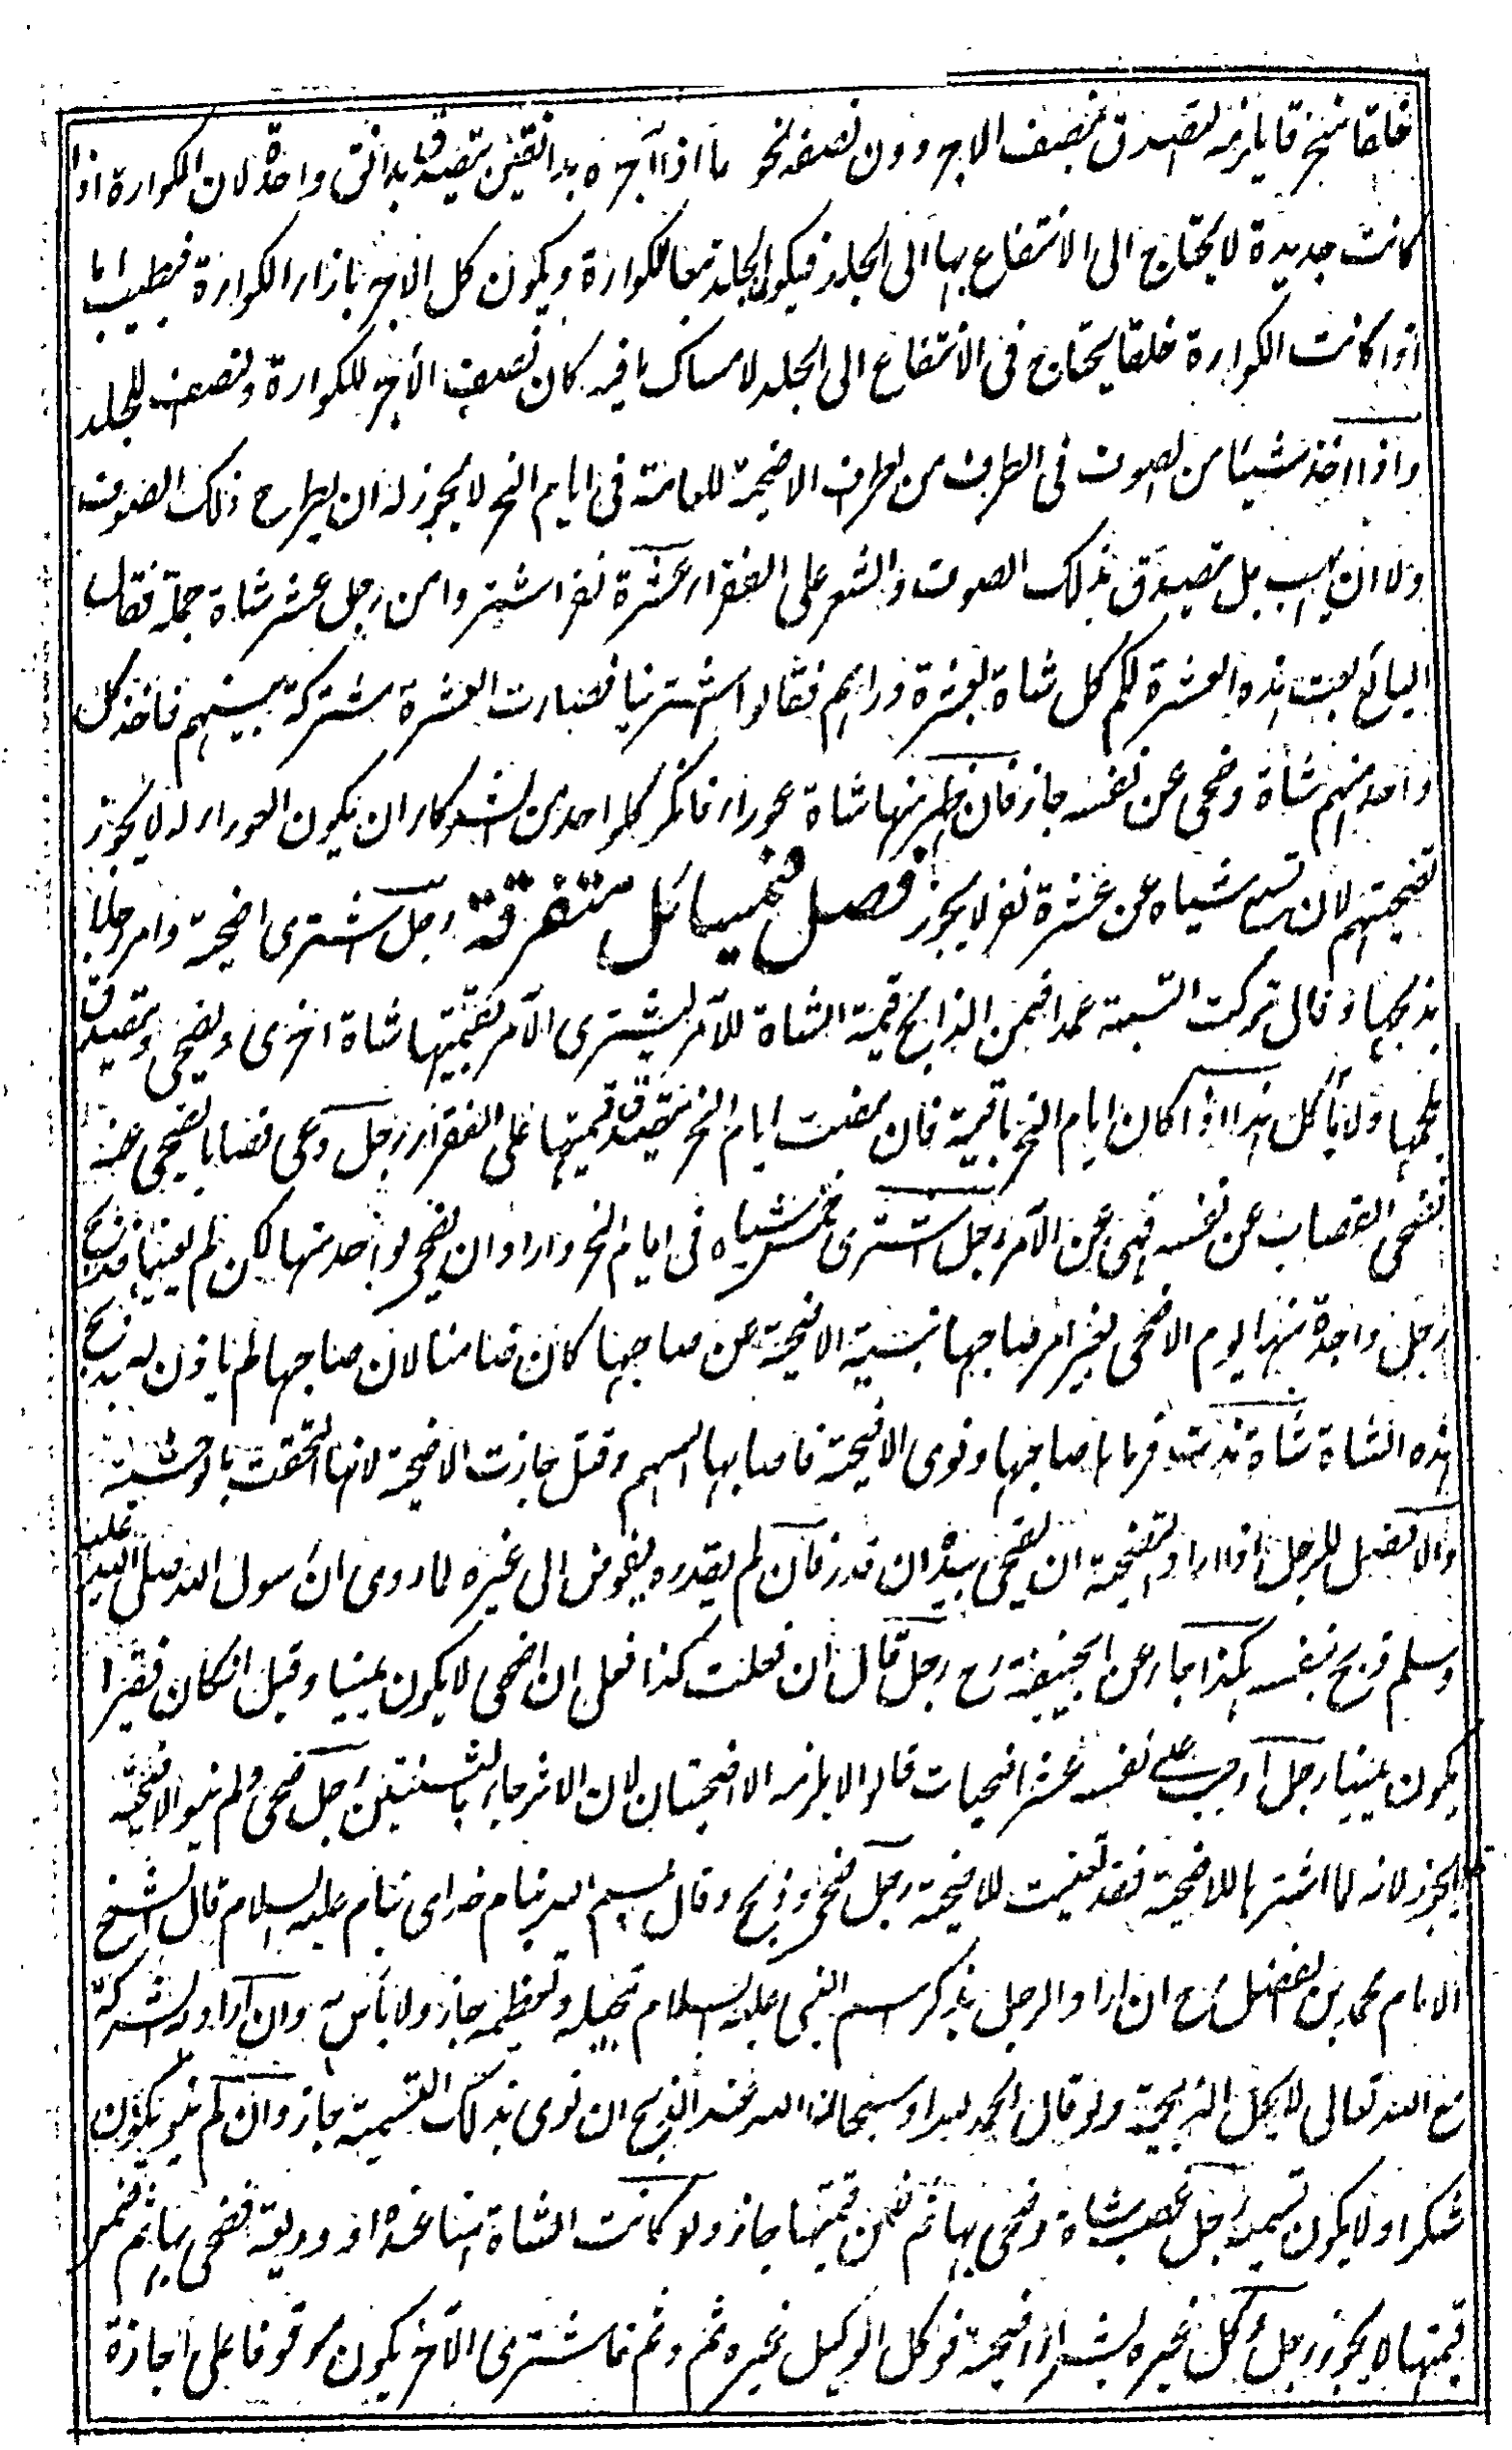 خلقا منخرقا يلزمه التصدق بنصف الاجر دون نصفه نحو ما اذا آجره بدانقين يتصدق بدانق واحد لان الكوارة اذا
كانت جديدة لا يحتاج الى الانتفاع بها الى الجلد فيكون الجلد تبعا للكوارة ويكون كل الاجر بازاء الكوارة فيطيب اما
اذا كانت الكوارة خلقا يحتاج فى الانتفاع الى الجلد لامساك ما فيه كان نصف الاجر للكوارة ونصف للجلد
واذا اخذ شيئا من الصوف فى الطرف من طرف الاضحية للعلامة فى ايام النحر لا يجوز له ان يطرح ذلك الصوف
ولا ان يهب بل يتصدق بذلك الصوف والشعر على الفقراء عشرة نفر اشتروا من رجل عشر شاة جملة فقال
البائع بعت هذه العشرة لكم كل شاة بعشرة دراهم فقالوا اشترينا فصارت العشرة مشتركة بينهم فاخذ كل
واحد منهم شاة وضحى عن نفسه جاز فان ظهر منها شاة عوراء فانكر كل واحد من الشركاء ان يكون العوراء له لا يجوز
تضحيتهم لان تسع شياه عن عشرة نفر لا يجوز فصل فى مسائل متفرقة رجل اشترى اضحية وامر رجلا
بذبحها وقال تركت التسمية عمدا ضمن الذابح قيمة الشاة للآمر ليشترى الآمر بقيمتها شاة اخرى ويضحى ويتصدق
بلحمها ولا يأكل هذا اذا كان ايام النحر باقية فان مضت ايام النحر يتصدق بقيمتها على الفقراء رجل دعى قصابا ليضحى عنه
فضحى القصاب عن نفسه فهى عن الآمر رجل اشترى خمس شياه فى ايام النحر واراد ان يضحى بواحد منها لكن لم يعينها فذبح
رجل واحدة منها يوم الاضحى بغير امر صاحبها بنية الاضحية عن صاحبها كان ضامنا لان صاحبها لم ياذن له بذبح
هذه الشاة شاة ندت فرماها صاحبها ونوى الاضحية فاصابها السهم وقتل جازت الاضحية لانها التحقت بالوحشية
والافضل للرجل اذا اراد التضحية ان يضحى بيده ان قدر فان لم يقدر يفوض الى غيره لما روى ان رسول الله صلى الله عليه
وسلم ذبح بنفسه هكذا جاء عن ابيحنيفة رح رجل قال ان فعلت كذا فعلى ان اضحى لا يكون يمينا وقيل ان كان فقيرا
يكون يمينا رجل اوجب على نفسه عشر اضحيات قالوا لا يلزمه الا اضحيتان لان الاثر جاء بالثنتين رجل ضحى ولم ينو الاضحية
يجوز لانه لما اشترها للاضحية فقد تعينت للاضحية رجل ضحى وذبح وقال بسم الله بنام خداى بنام عليه السلام قال الشيخ
الامام محمد بن الفضل رح ان اراد الرجل بذكر اسم النبى عليه السلام تبجيله وتعظيمه جاز ولا بأس به وان اراد به الشركة
مع الله تعالى لا يحل الذبيحة ولو قال الحمد لله او سبحان الله عند الذبح ان نوى بذلك التسمية جاز وان لم ينو يكون
شكرا ولا يكون تسمية رجل غصب شاة وضحى بها ثم ضمن قيمتها جاز ولو كانت الشاة امانة عنده او وديعة فضحى بها ثم ضمن
قيمتها لا يجوز رجل وكل غيره بشراء اضحية فوكل الوكيل غيره ثم وثم فاشترى الآخر يكون موقوفا على اجازة